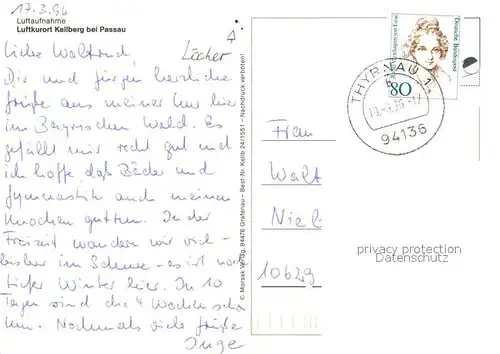 17.3.96
Luftaufnahme
Luftkurort Kellberg bei Passau
Löcher
Liebe Waltraud,
Dir und Jürgen herzliche
Grüße aus meiner Kur hier
im Bayrischen Wald. Es
gefällt mir recht gut und
ich hoffe, daß Bäder und
Gymnastik auch meinen
Knochen guttun. In der
Freizeit wandern wir viel -
bisher im Schnee - es ist noch
tiefer Winter hier. In 10
Tagen sind die 4 Wochen scho
um. Nochmals viele Grüße
Inge
© Morsak Verlag, 94476 Grafenau – Best-Nr. Kellb 24/1551 – Nachdruck verboten!
Deutsche Bundespost
80
THYRNAU 1
94136
Frau
Walt
Niel
10629
privacy protection
Datenschutz